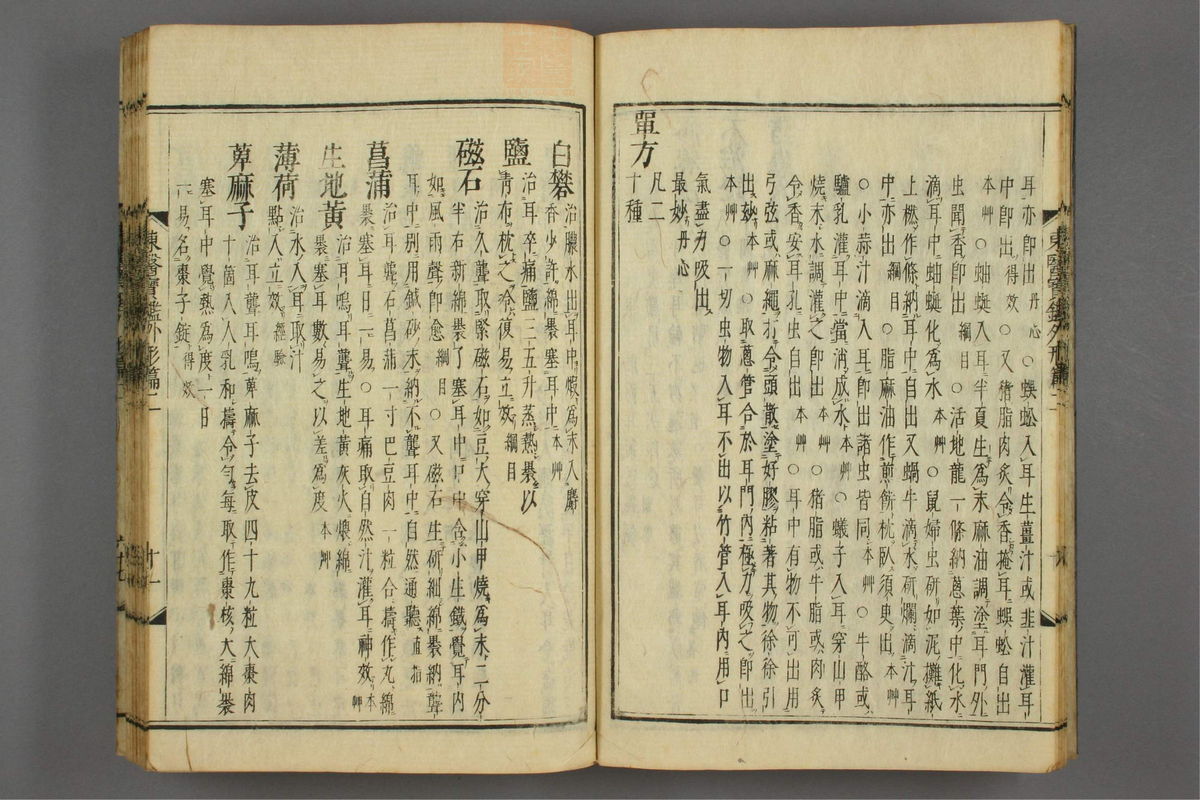 耳亦即出丹心○蜈蚣入耳生薑汁或韭汁灌耳
中即出得效○又猪脂肉炙令香掩耳蜈蚣自出
本艸○蚰蜒入耳半夏生爲末麻油調塗耳門外
虫聞香即出綱目○活地龍一條納葱葉中化水
滴耳中蚰蜒化爲水本艸○鼠婦虫研如泥攤紙
上撚作條納耳中自出又蝸牛滴水研爛滴汁耳
中亦出綱目○脂麻油作煎餠枕臥須臾出本艸
○小蒜汁滴入耳即出諸虫皆同本艸○牛酪或
驢乳灌耳中當消成水本艸○蟻子入耳穿山甲
燒末水調灌之即出本艸○猪脂或牛脂或肉炙
令香安耳孔虫自出本艸○耳中有物不可出用
弓弦或麻繩打令頭散塗好膠粘著其物徐徐引
出妙本艸○取葱管合於耳門內極力吸之即出
本艸○一切虫物入耳不出以竹管入耳內用口
氣盡力吸出
最妙丹心
單方
凡二
十種
白礬
治膿水出耳中煆爲末入麝
香少許綿裹塞耳中本艸
鹽
治耳卒痛鹽三五升蒸熱裹以
靑布枕之冷復易立效綱目
磁石
治久聾取緊磁石如豆大穿山甲燒爲末二分
半右新綿裹了塞耳中口中含小生鐵覺耳內
如風雨聲即愈綱目○又磁石生研細綿裹納聾
耳中別用鍼砂末納不聾耳中自然通聽直指
菖蒲
治耳聾石菖蒲一寸巴豆肉一粒合擣作丸綿
裹塞耳日一易○耳痛取自然汁灌耳神效本艸
生地黃
治耳鳴耳聾生地黃灰火煨綿
裹塞耳數易之以差爲度本艸
薄荷
治水入耳取汁
點入立效經驗
萆麻子
治耳聾耳鳴萆麻子去皮四十九粒大棗肉
十箇入人乳和擣令勻每取作棗核大綿裹
塞耳中覺熱爲度一日
一易名棗子錠得效
東醫寶鑑外形篇二